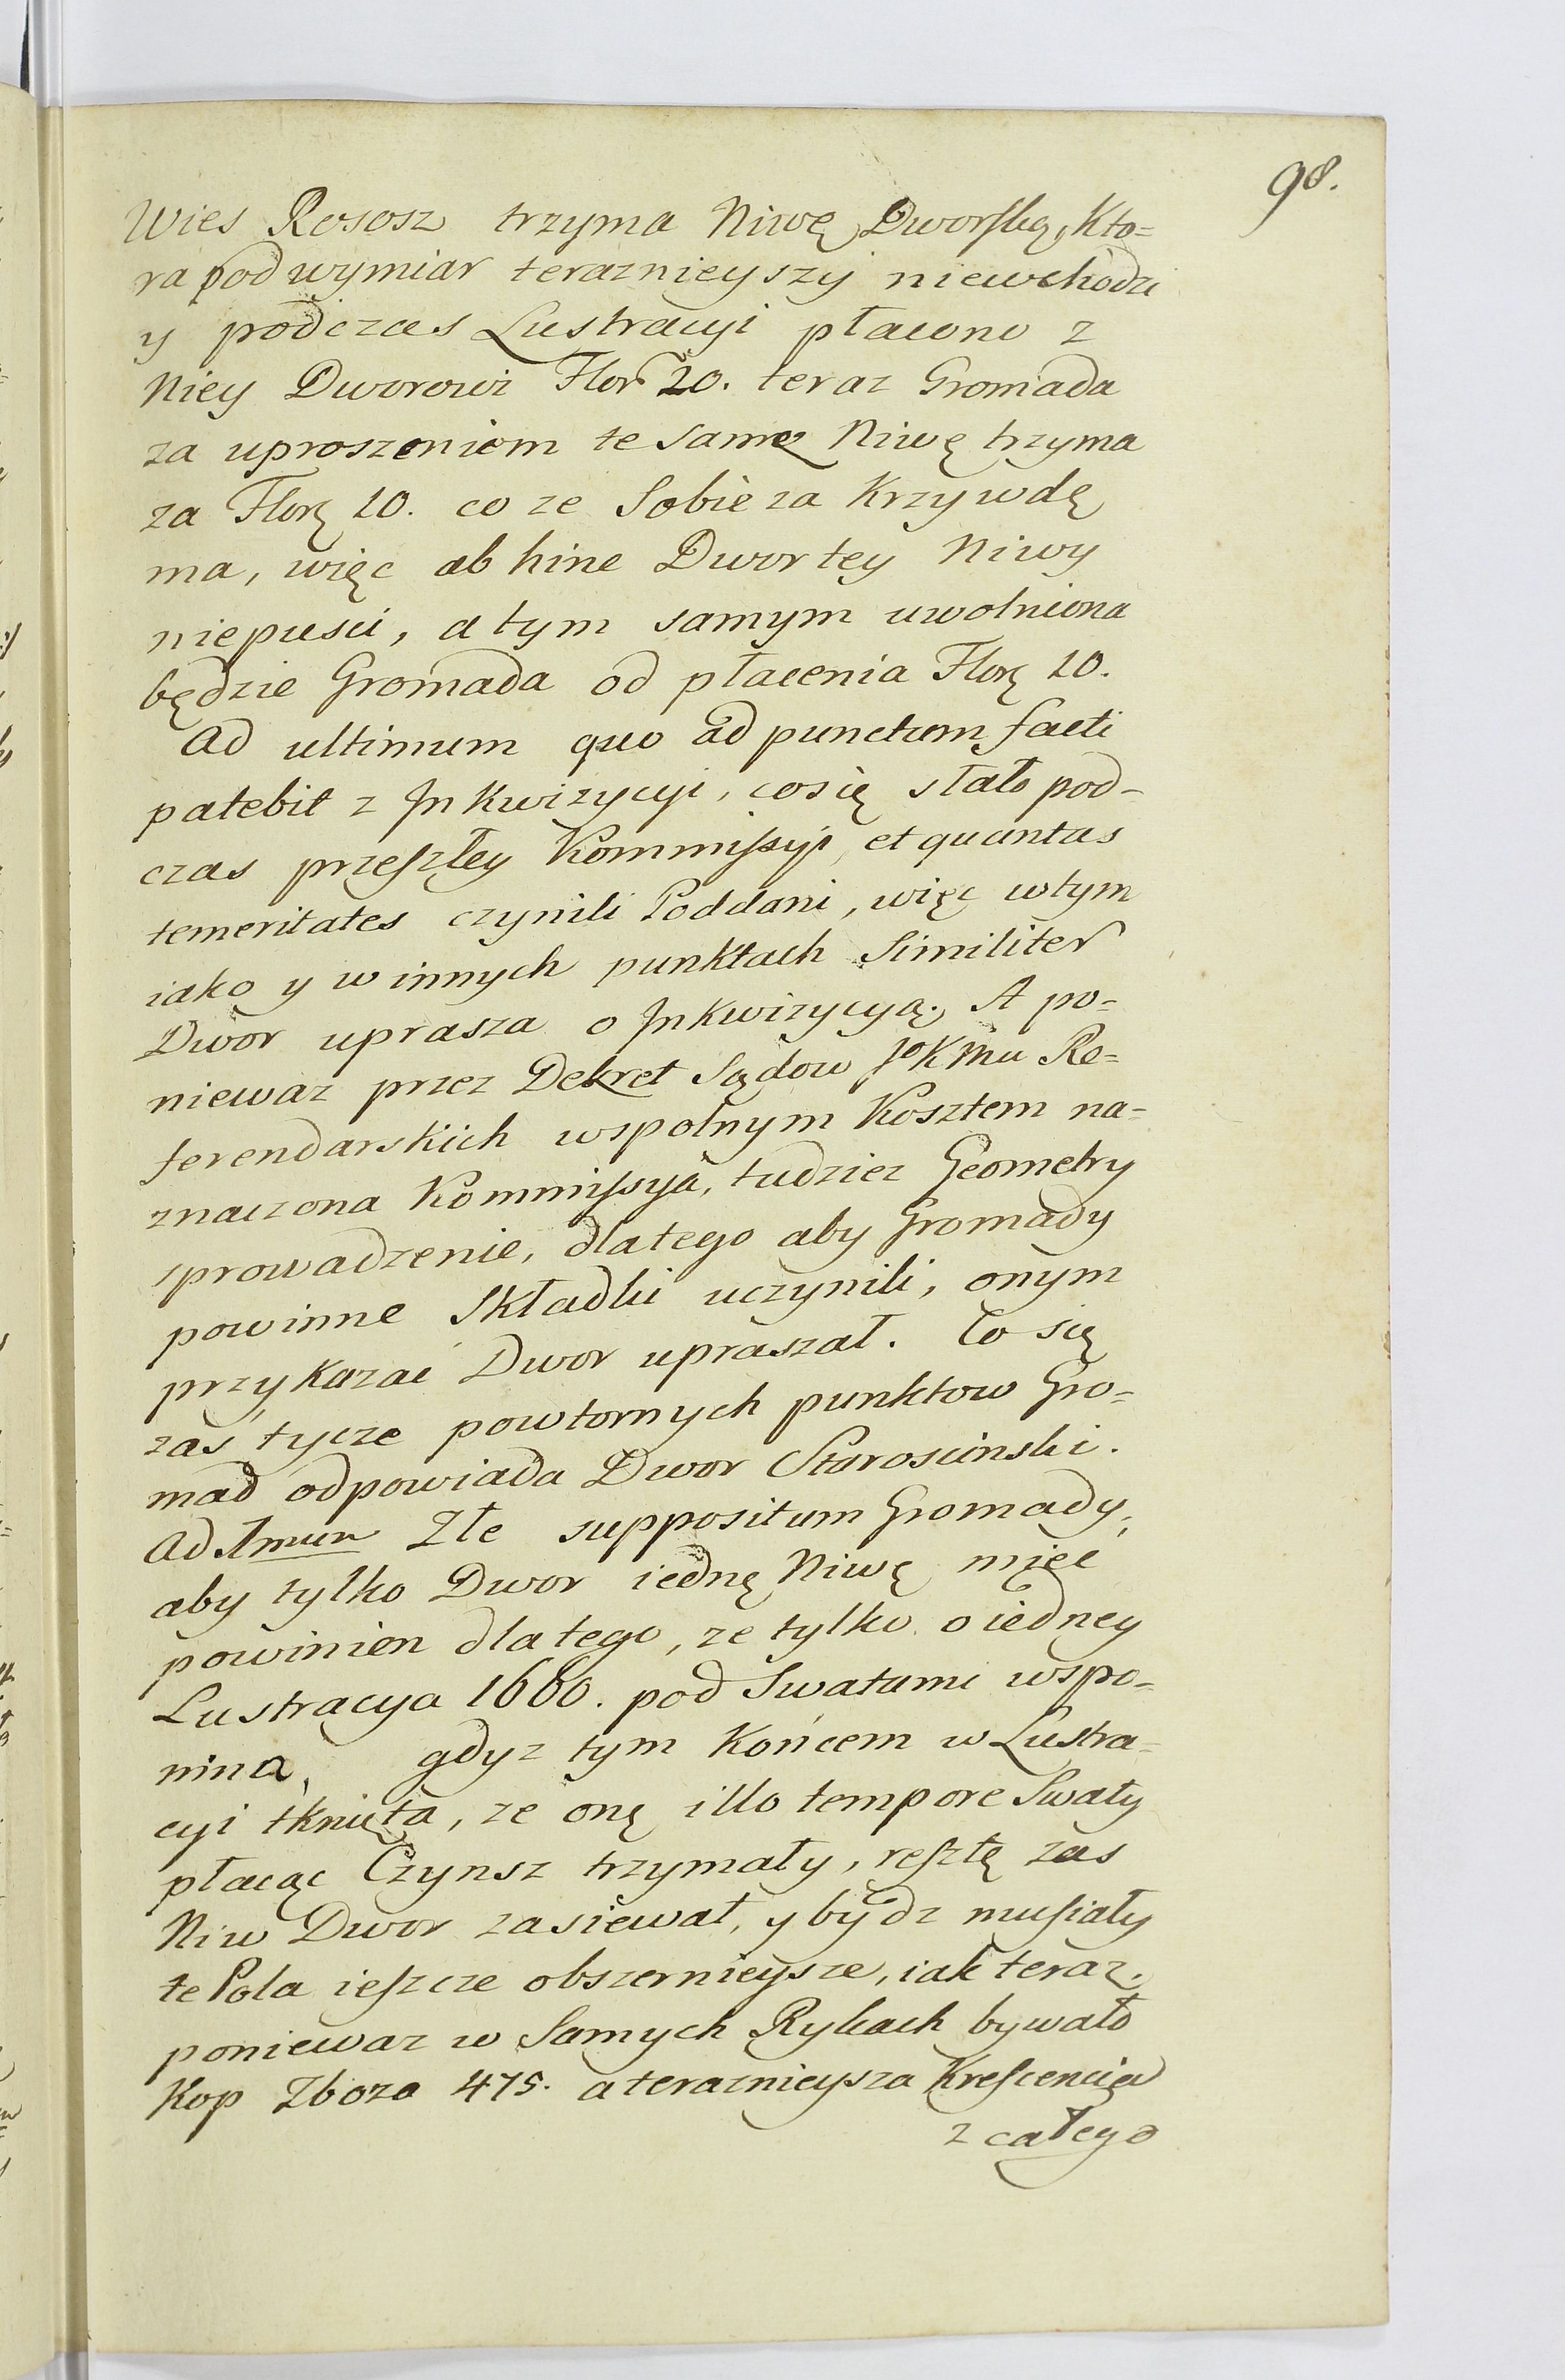 98.
Wies Rososz trzyma Niwę Dworską, Kto=
ra pod wymiar teraznieyszy niewchodzi
y podczas Lustracyi płacono z
Niey Dworowi Flor 20. teraz Gromada
za uproszeniem te samę Niwę trzyma
za Florę 10. co ze Sobie za Krzywdę
ma, więc ab hinc Dwor tey Niwy
niepusci, a tym samym uwolniona
będzie Gromada od płacenia Florę 10.
Ad ultimum quo ad punctum facti
patebit z Jnkwizycyi, co się stało pod-
czas przeszłey Kommissyi, et quantas
temeritates czynili Poddani, więc w tym
iako y w innych punktach Similiter
Dwor uprasza o Jnkwizycyą. A po=
niewaz przez Dekret Sądow JoKMu Re=
ferendarskich wspolnym Kosztem na=
znaczona Kommissya, tudziez Geometry
sprowadzenie, dlatego aby Gromady
powinne Składki uczynili, onym
przykazać Dwor upraszał. Co się
zaś tycze powtornych punktow Gro=
mad odpowiada Dwor Starosciński.
Ad 1mum Złe suppositum Gromady,
aby tylko Dwor iednę Niwę mięć
powinien dlatego, ze tylko o iedney
Lustracya 1660. pod Swatami wspo=
nina, gdyz tym Końcem w Lustra=
cyi tknięta, ze onę illo tempore Swaty
płacąc Czynsz trzymały, resztę zas
Niw Dwor zasiewał, y bydz musiały
te Pola ieszcze obszernieysze, iak teraz.
poniewaz w Samych Rykach bywało
Kop Zboza 475. a teraznieysza Krescencia
z całego